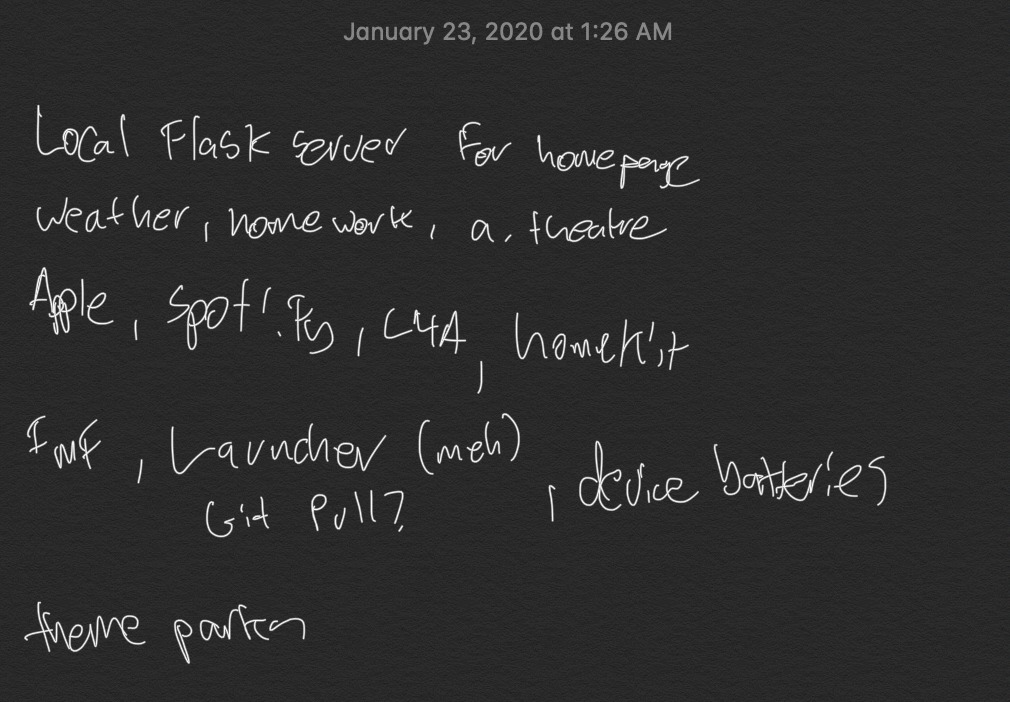 January 23, 2020 at 1:26 AM
Local Flask server For homepage
weather, homework, a. theatre
Apple, Spotify, C4A, homekit
FMF, Launcher (meh), device batteries
Git Pull?
theme